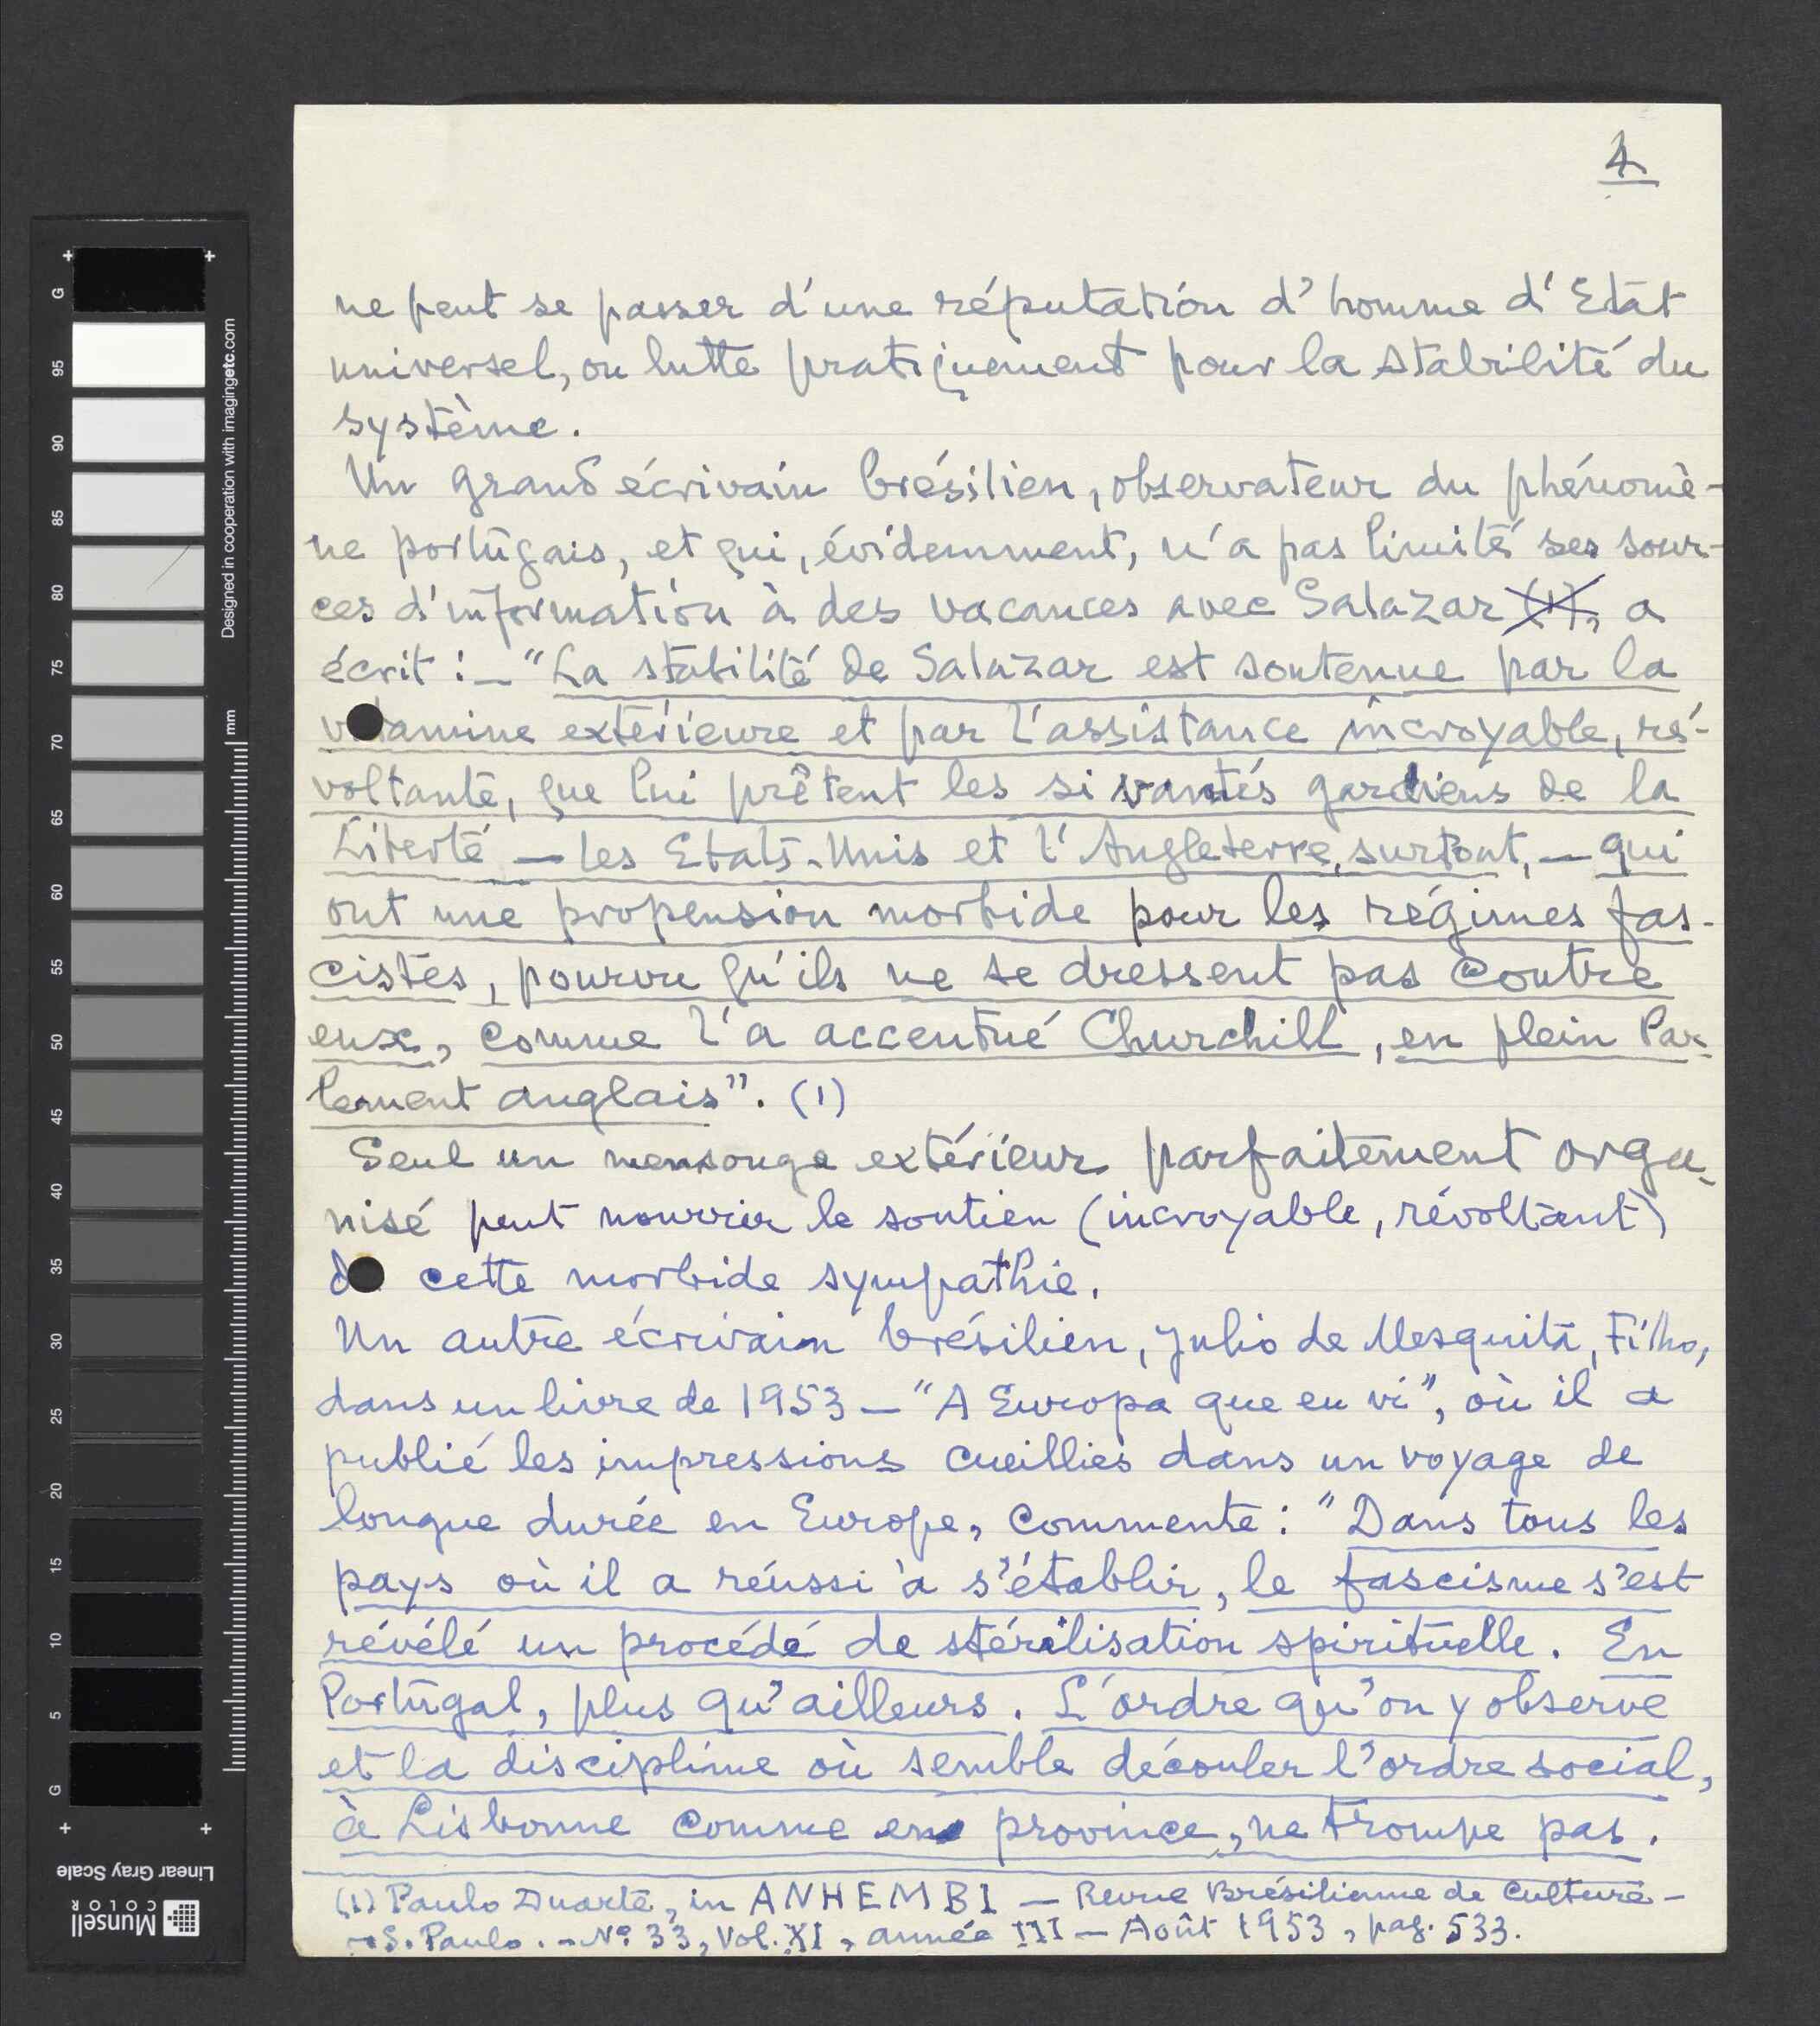 4
ne peut se passer d'une réputation d'homme d'Etat
universel, on lutte pratiquement pour la stabilité du
système.
Un grand écrivain brésilien, observateur du phénomè-
ne portugais, et qui, évidemment, n'a pas limité ses sour-
ces d'information à des vacances avec Salazar (1), a
écrit : — "La stabilité de Salazar est soutenue par la
v amine extérieure et par l'assistance incroyable, ré-
voltante, que lui prêtent les si vantés gardiens de la
Liberté — les Etats-Unis et l'Angleterre, surtout, — qui
ont une propension morbide pour les régimes fas-
cistes, pourvu qu'ils ne se dressent pas contre
eux, comme l'a accentué Churchill, en plein Par-
lement anglais". (1)
Seul un mensonge extérieur parfaitement orga-
nisé peut nourrir le soutien (incroyable, révoltant)
d cette morbide sympathie.
Un autre écrivain brésilien, Julio de Mesquita, Filho,
dans un livre de 1953 — "A Europa que eu vi", où il a
publié les impressions cueillies dans un voyage de
longue durée en Europe, commente : "Dans tous les
pays où il a réussi à s'établir, le fascisme s'est
révélé un procédé de stérilisation spirituelle. En
Portugal, plus qu'ailleurs. L'ordre qu'on y observe
et la discipline où semble découler l'ordre social,
à Lisbonne comme en province, ne trompe pas.
(1) Paulo Duarte, in ANHEMBI — Revue Brésilienne de Culture —
— S. Paulo. — Nº 33, Vol. XI, année III — Août 1953, pag. 533.
G
95
90
85
80
75
70
65
60
55
50
45
40
35
30
25
20
15
10
5
G
mm
Designed in cooperation with imagingetc.com
Linear Gray Scale
Munsell
COLOR